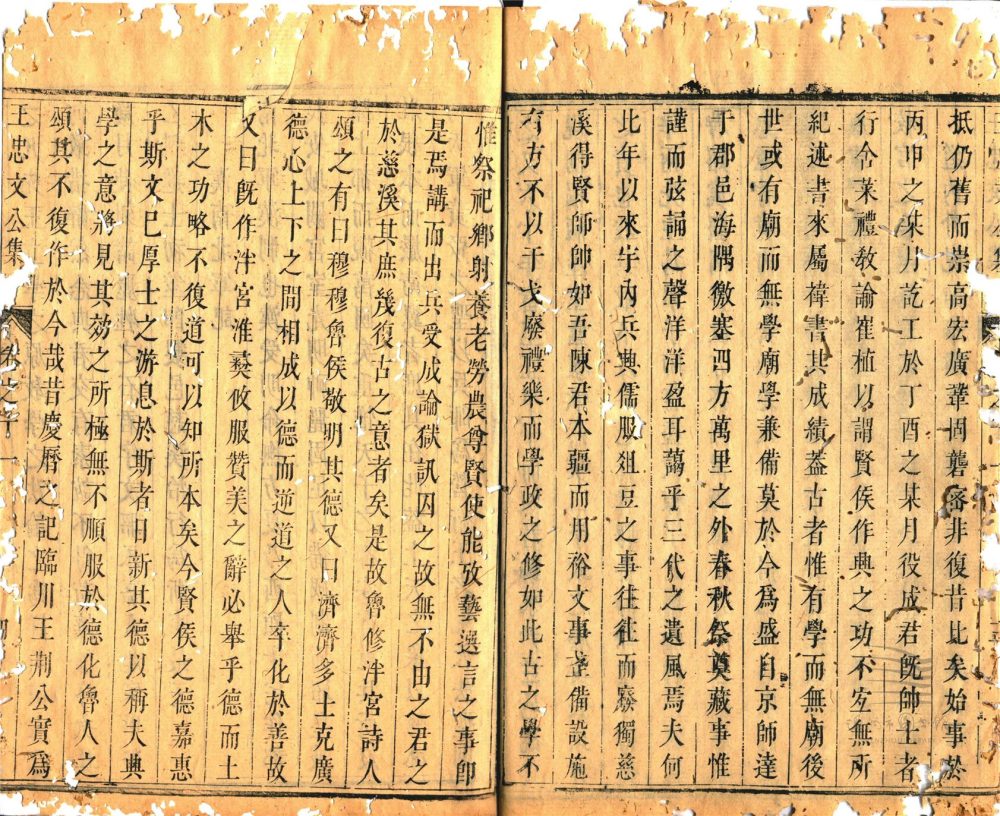 抵仍舊而崇高宏廣鞏固礱密非復昔比矣始事於
丙申之某月訖工於丁酉之某月役成君既帥士者
行舍菜禮教諭崔植以謂賢侯作興之功不宜無所
紀述書來屬禕書其成績蓋古者惟有學而無廟後
世或有廟而無學廟學兼備莫於今為盛自京師達
于郡邑海隅徼塞四方萬里之外春秋祭奠藏事惟
謹而弦誦之聲洋洋盈耳藹乎三代之遺風焉夫何
比年以來宇內兵興儒服俎豆之事往往而廢獨慈
溪得賢師帥如吾陳君本疆而用裕文事荖備設施
有方不以干戈廢禮樂而學政之修如此古之學不
惟祭祀鄉射養老勞農尊賢使能攷藝選言之事卽
是焉講而出兵受成論獄訊囚之故無不由之君之
於慈溪其庶幾復古之意者矣是故魯修泮宮詩人
頌之有曰穆穆魯侯敬明其德又曰濟濟多士克廣
德心上下之間相成以德而逆道之人卒化於善故
又曰旣作泮宮淮夷攸服贊美之辭必舉乎德而土
木之功略不復道可以知所本矣今賢侯之德嘉惠
乎斯文已厚士之游息於斯者日新其德以稱夫興
學之意將見其效之所極無不順服於德化魯人之
頌其不復作於今哉昔慶曆之記臨川王荊公實為
王忠文公集 卷之